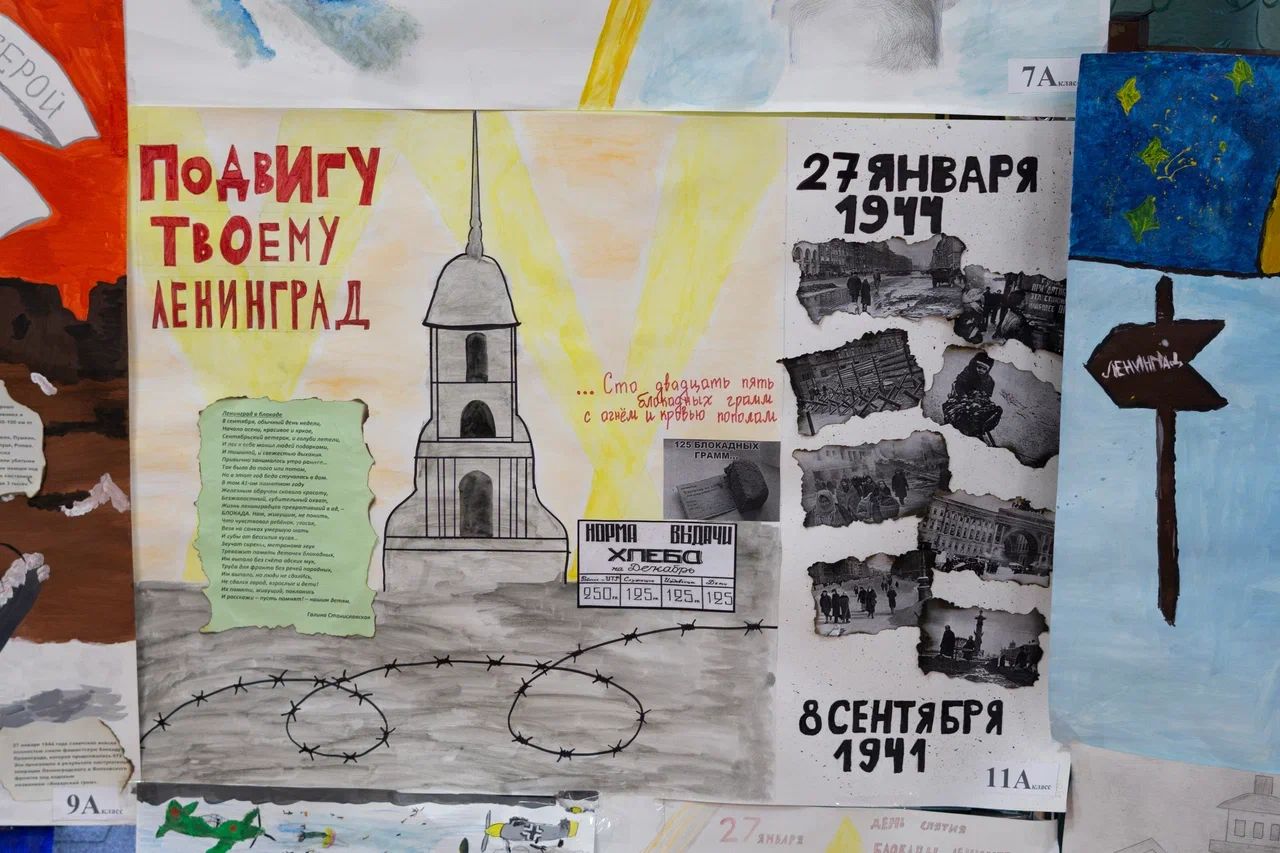 ГЕРОЙ
7А класс
ПОДВИГУ
ТВОЕМУ
ЛЕНИНГРАД
27 ЯНВАРЯ
1944
ЛЕНИНГРАД
... Сто двадцать пять
блокадных грамм
с огнём и кровью пополам
125 БЛОКАДНЫХ
ГРАММ...
НОРМА ВЫДАЧИ
ХЛЕБА
на Декабрь
Служащие Иждивенцы Дети
250г. 125г. 125г. 125
Ленинград в блокаде
В сентябре, обычный день недели,
Начало осени, красивое и яркое,
Сентябрьский ветерок, и голуби летели,
И лес к себе манил людей подарками,
И тишиной, и свежестью дыхания.
Привычно занималось утро раннее...
Так было до того или потом,
Но в этот год беда стучалась в дом.
В том 41-ом памятном году
Железным обручем сковали красоту,
Безжалостный, губительный охват,
Жизнь ленинградцев превративший в ад, –
БЛОКАДА. Нам, живущим, не понять,
Что чувствовал ребёнок, угасая,
Везя на санках умершую мать
И губы от бессилия кусая...
Звучат сирены, метронома звук
Тревожит память деточек блокадных,
Им выпало без счёта адских мук,
Труда для фронта без речей парадных,
Им выпало, но люди не сдались,
Не сдался город, взрослые и дети!
Их памяти, живущий, поклонись
И расскажи – пусть помнят! – нашим детям.
Галина Станиславская
8 СЕНТЯБРЯ
1941
11А класс
27 января 1944 года советские войска
9А класс
27 ЯНВАРЯ
ДЕНЬ СНЯТИЯ
БЛОКАДЫ